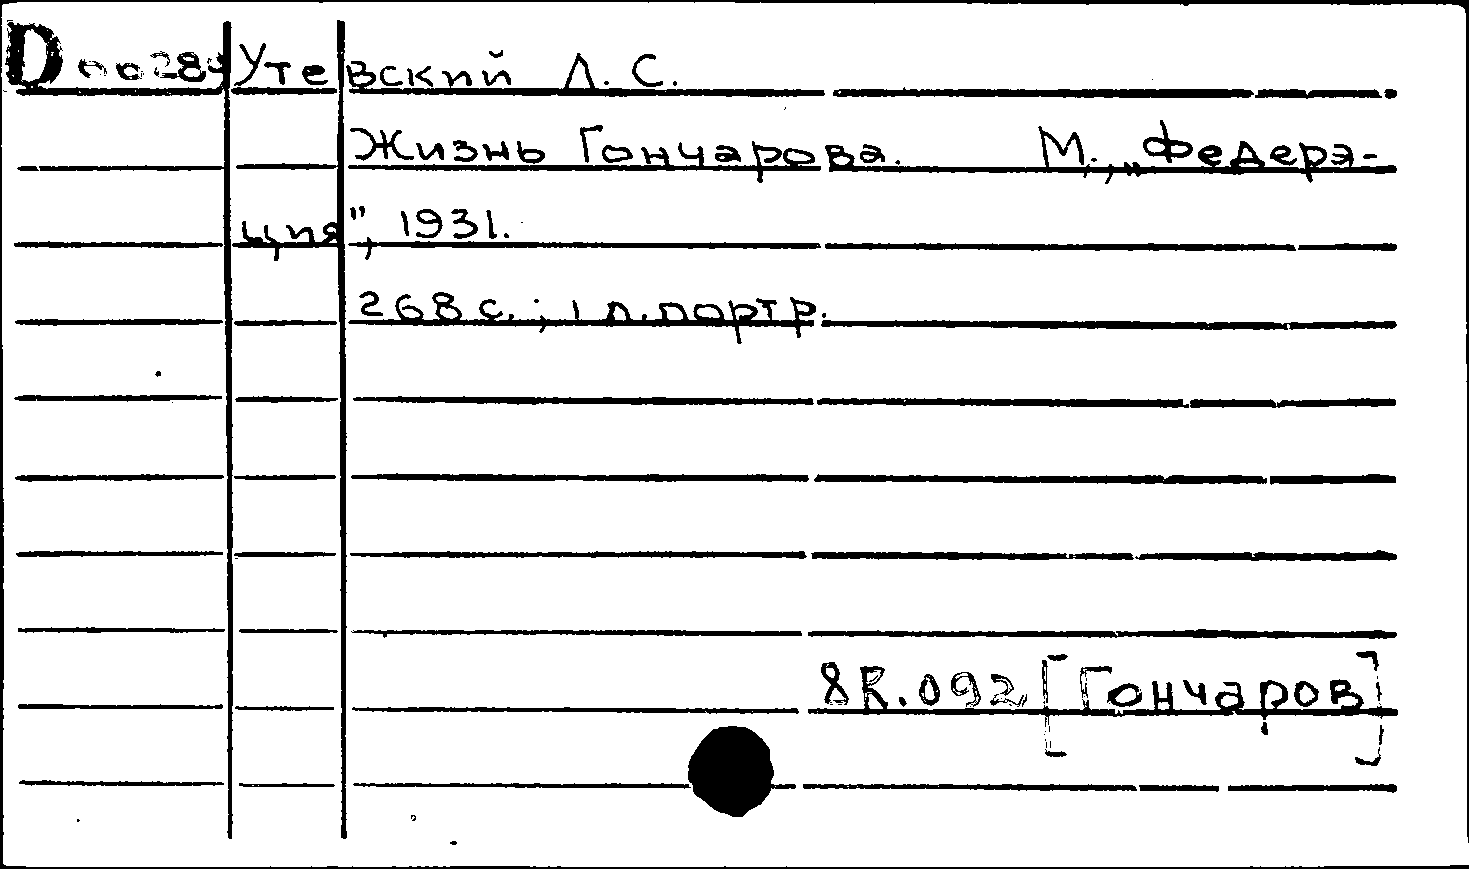 Утевский Л. С.
Жизнь Гончарова. М., „Федера-
ция", 1931.
268 с.; 1 л. портр.
8R.092 [Гончаров]